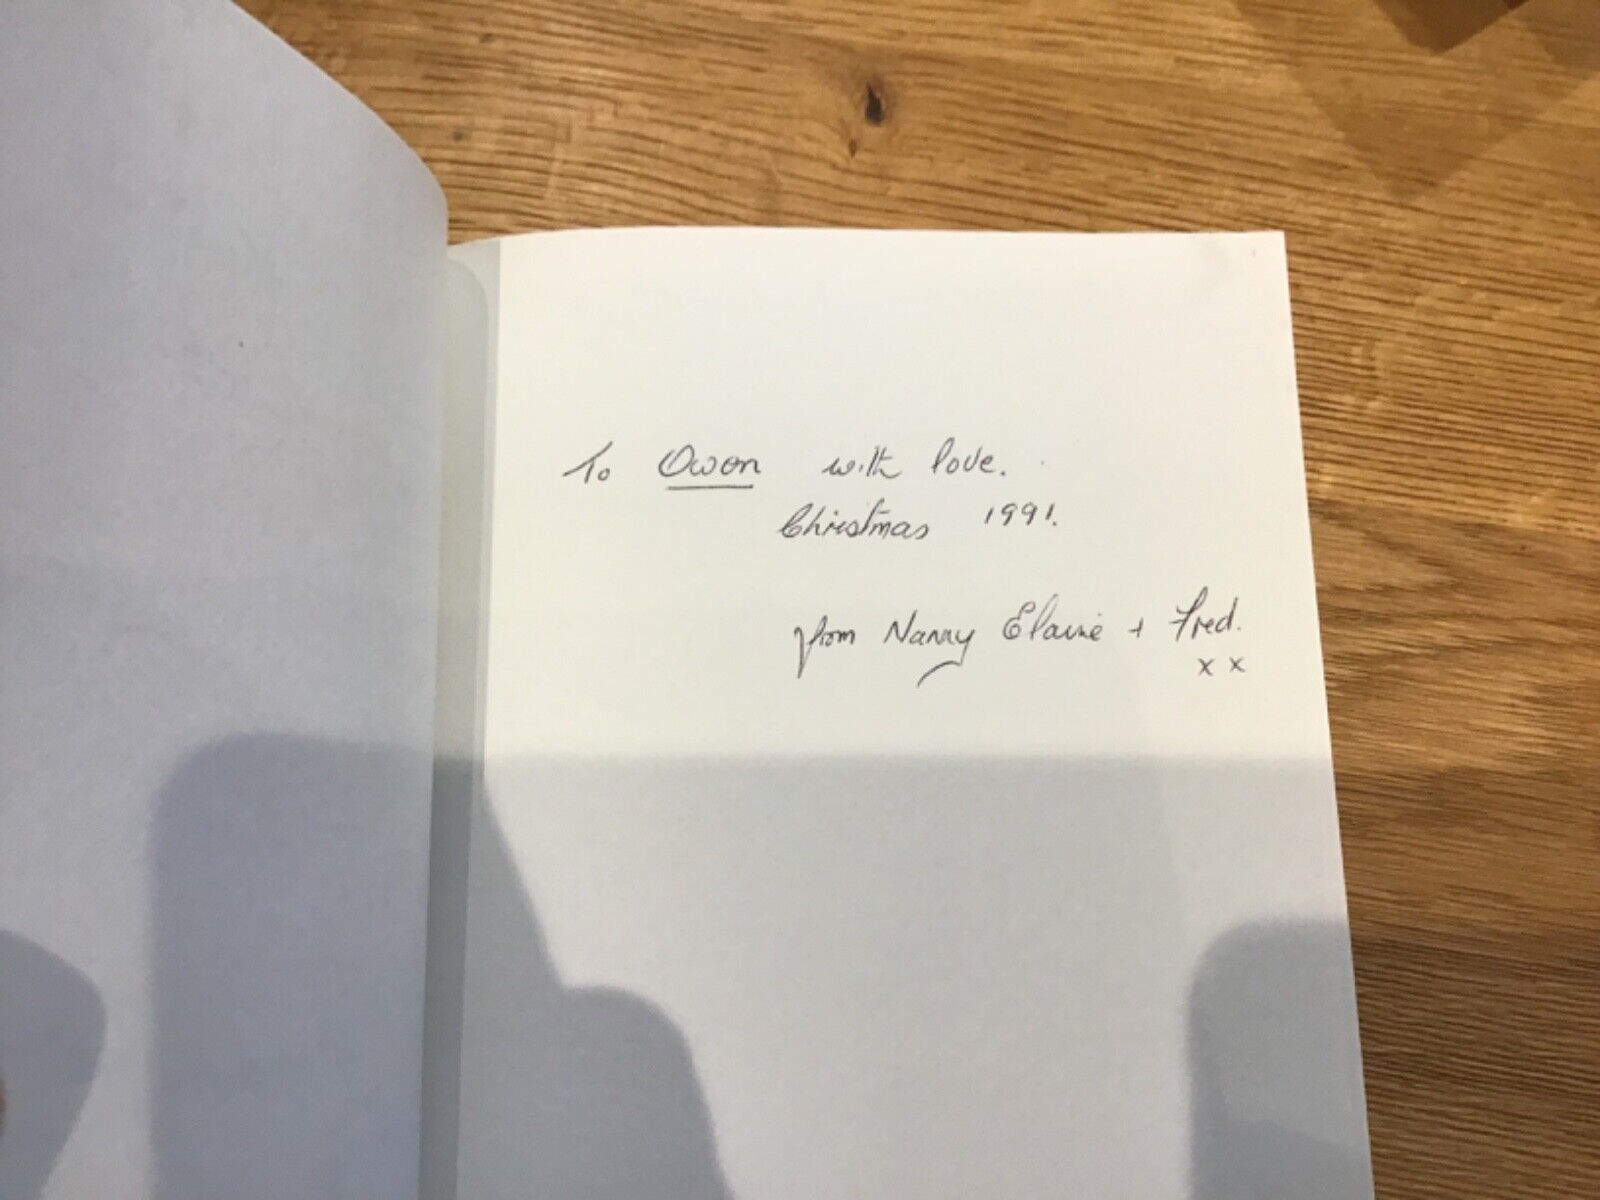 To Owen with love.
Christmas 1991.
from Nanny Elaine + Fred.
x x